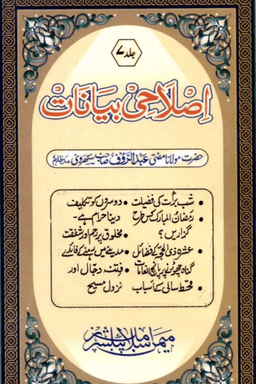 جلد ۷
اصلاحی بیانات
حضرت مولانا مفتی عبدالرؤف صاحب سکھروی مدظلہم
• شب برأت کی فضیلت
• رمضان المبارک کس طرح
گزاریں؟
• عشرہ ذی الحجہ کے فضائل
• گناہ چھوڑنے پر پانچ انعامات
• قحط سالی کے اسباب
• دوسروں کو تکلیف
دینا حرام ہے۔
• مخلوق پر رحم اور شفقت
• مدینے میں رہنے کے فائدے
• فتنہ دجال اور
نزول مسیح
میمن اسلامک پبلشرز